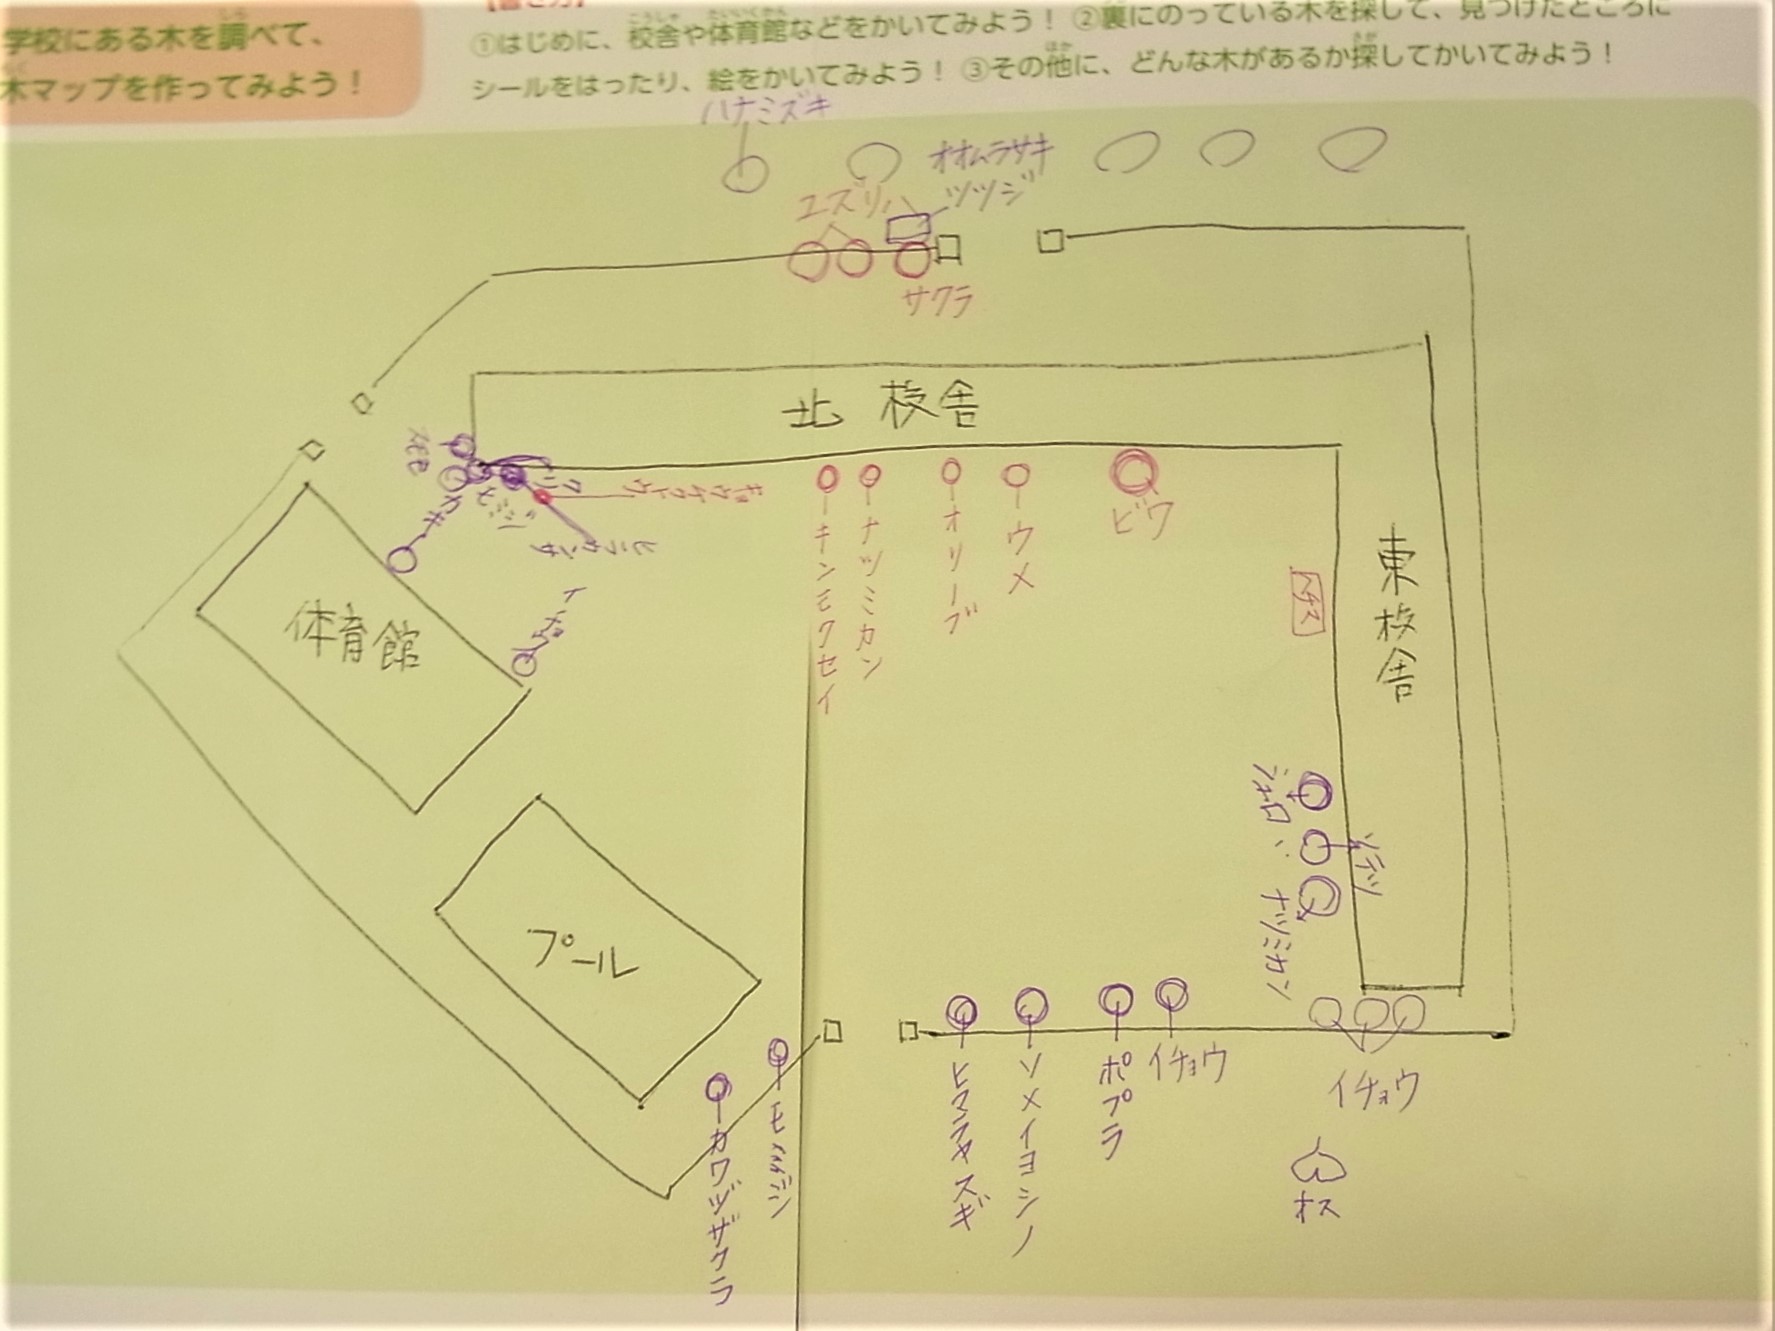 学校にある木を調べて、
木マップを作ってみよう！
①はじめに、校舎や体育館などをかいてみよう！ ②裏にのっている木を探して、見つけたところに
シールをはったり、絵をかいてみよう！ ③その他に、どんな木があるか探してかいてみよう！
ハナミズキ
オオムラサキ
ツツジ
ユズリハ
サクラ
北校舎
カキ
キンモクセイ
ナツミカン
オリーブ
ウメ
ビワ
東校舎
体育館
シュロ
ソテツ
ナツミカン
プール
モミジ
カワヅザクラ
ヒマラヤスギ
ソメイヨシノ
ポプラ
イチョウ
イチョウ
オス